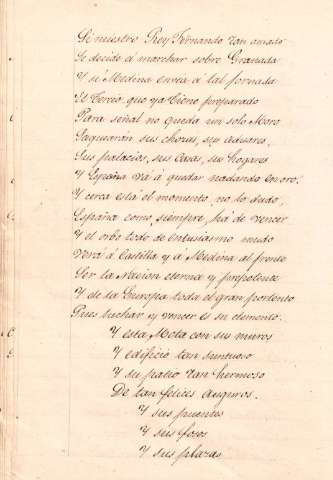 Si nuestro Rey Fernando tan amado
Se decide á marchar sobre Granada
Y si Medina envia á tal jornada
El Tercio que ya tiene preparado
Para señal no queda un solo Moro
Saquearán sus chozas, sus aduares,
Sus palacios, sus casas, sus hogares
Y España vá á quedar nadando en oro.
Y cerca está el momento, no lo dudo,
España como siempre, há de vencer
Y el orbe todo de entusiasmo mudo
Verá á Castilla y á Medina al frente
Ser la Nacion eterna y prepotente
Y de la Europa toda el gran portento
Pues luchar y vencer es su elemento.
Y esta Mota con sus muros
Y edificio tan suntuoso
Y su patio tan hermoso
De tan felices augurios.
Y sus puentes
Y sus fosos
Y sus plazas